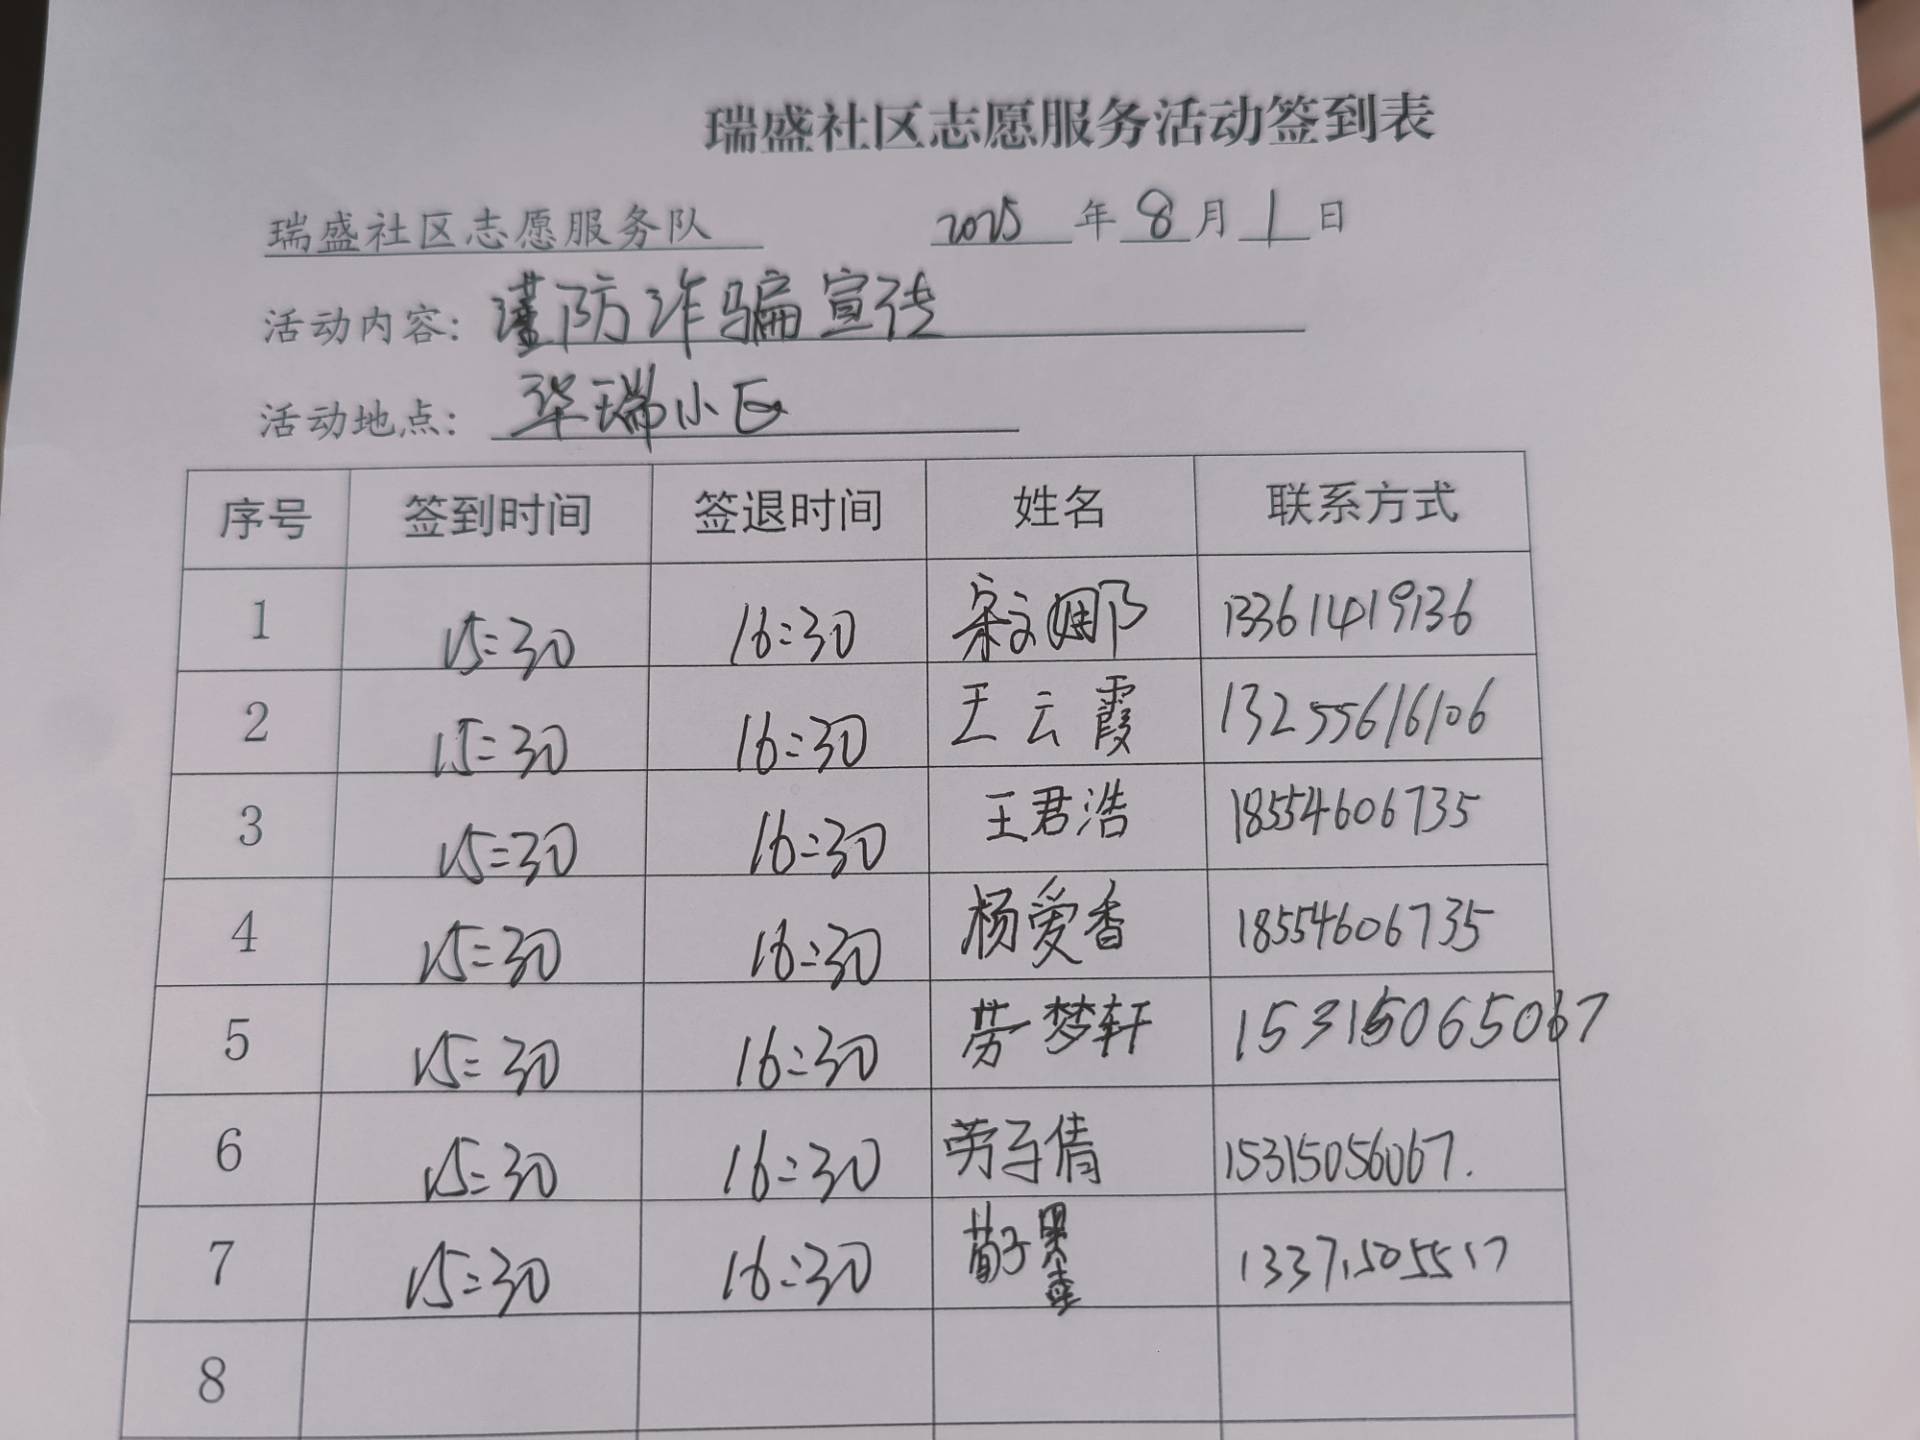 瑞盛社区志愿服务活动签到表
瑞盛社区志愿服务队 2025 年 8 月 1 日
活动内容: 谨防诈骗宣传
活动地点: 华瑞小区
序号 签到时间 签退时间 姓名 联系方式
1 15:30 16:30 宋文娜 13361419136
2 15:30 16:30 王云霞 13255616106
3 15:30 16:30 王君浩 18554606735
4 15:30 16:30 杨爱香 18554606735
5 15:30 16:30 劳梦轩 15315065067
6 15:30 16:30 劳子倩 15315056067.
7 15:30 16:30 13371505517
8